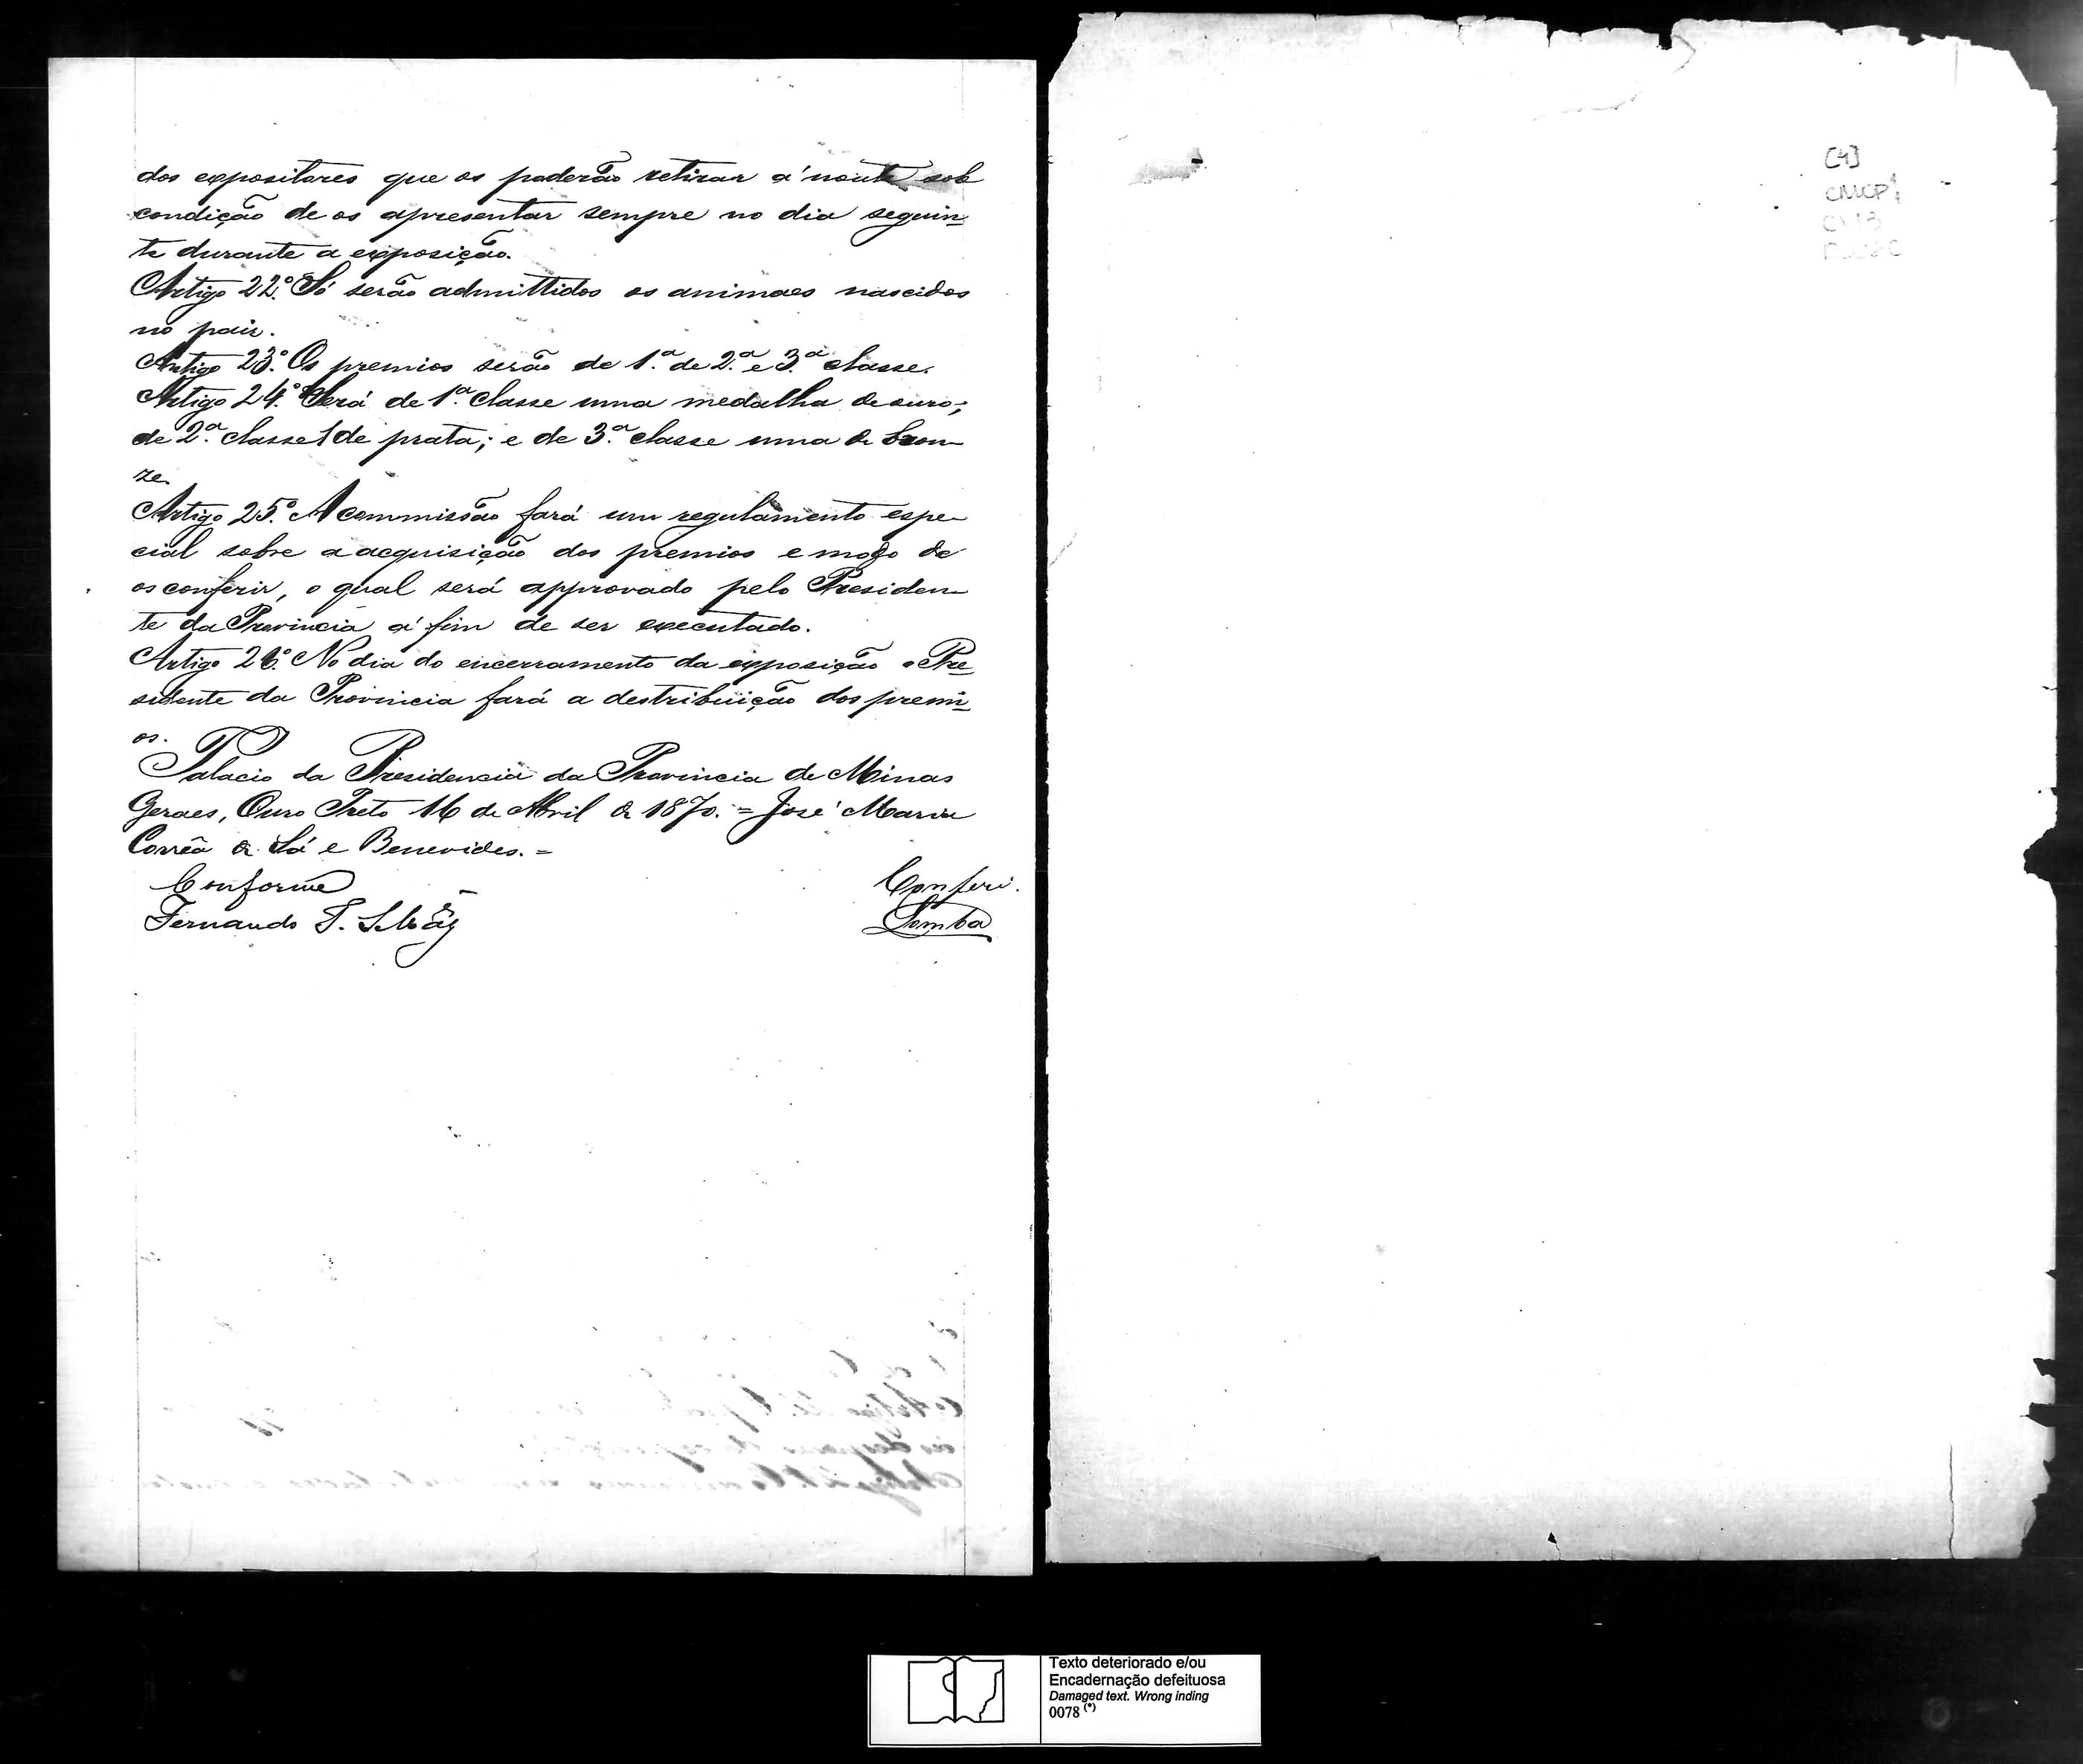 dos expositores que os poderão retirar á noute sob
condição de os apresentar sempre no dia seguin=
te durante a exposição.
Artigo 22.º Só serão admittidos os animaes nascidos
no paiz.
Artigo 23.º Os premios serão de 1.ª de 2.ª e 3.ª classe.
Artigo 24.º Será de 1.ª classe uma medalha de ouro;
de 2.ª classe 1 de prata; e de 3.ª classe uma de bron-
ze.
Artigo 25.º A commissão fará um regulamento espe-
cial sobre a acquisição dos premios e modo de
os conferir, o qual será approvado pelo Presiden-
te da Provincia á fim de ser executado.
Artigo 26.º No dia do encerramento da exposição o Pre=
sidente da Provincia fará a destribuição dos premi=
os.
Palacio da Presidencia da Provincia de Minas
Geraes, Ouro Preto 16 de Abril de 1870. = José Maria
Corrêa de Sá e Benevides. =
Conforme
Fernando
Conferi.
Lomba
[4]
CMCP
Texto deteriorado e/ou
Encadernação defeituosa
Damaged text. Wrong inding
0078 (*)